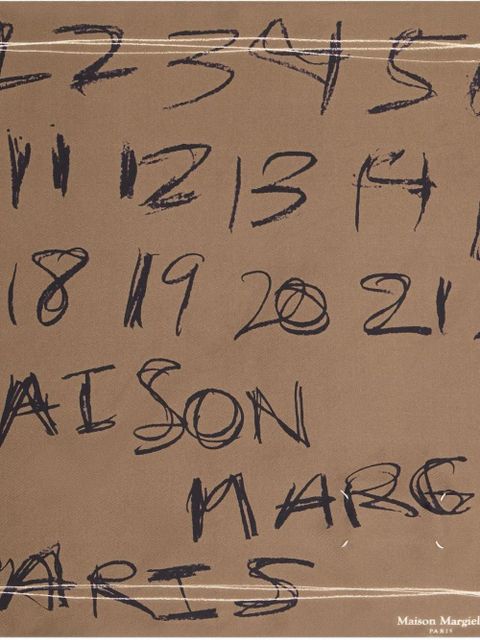 2 3 4 5
11 12 13 14
18 19 20 21
AISON
MARG
PARIS
Maison Margiel
PARIS